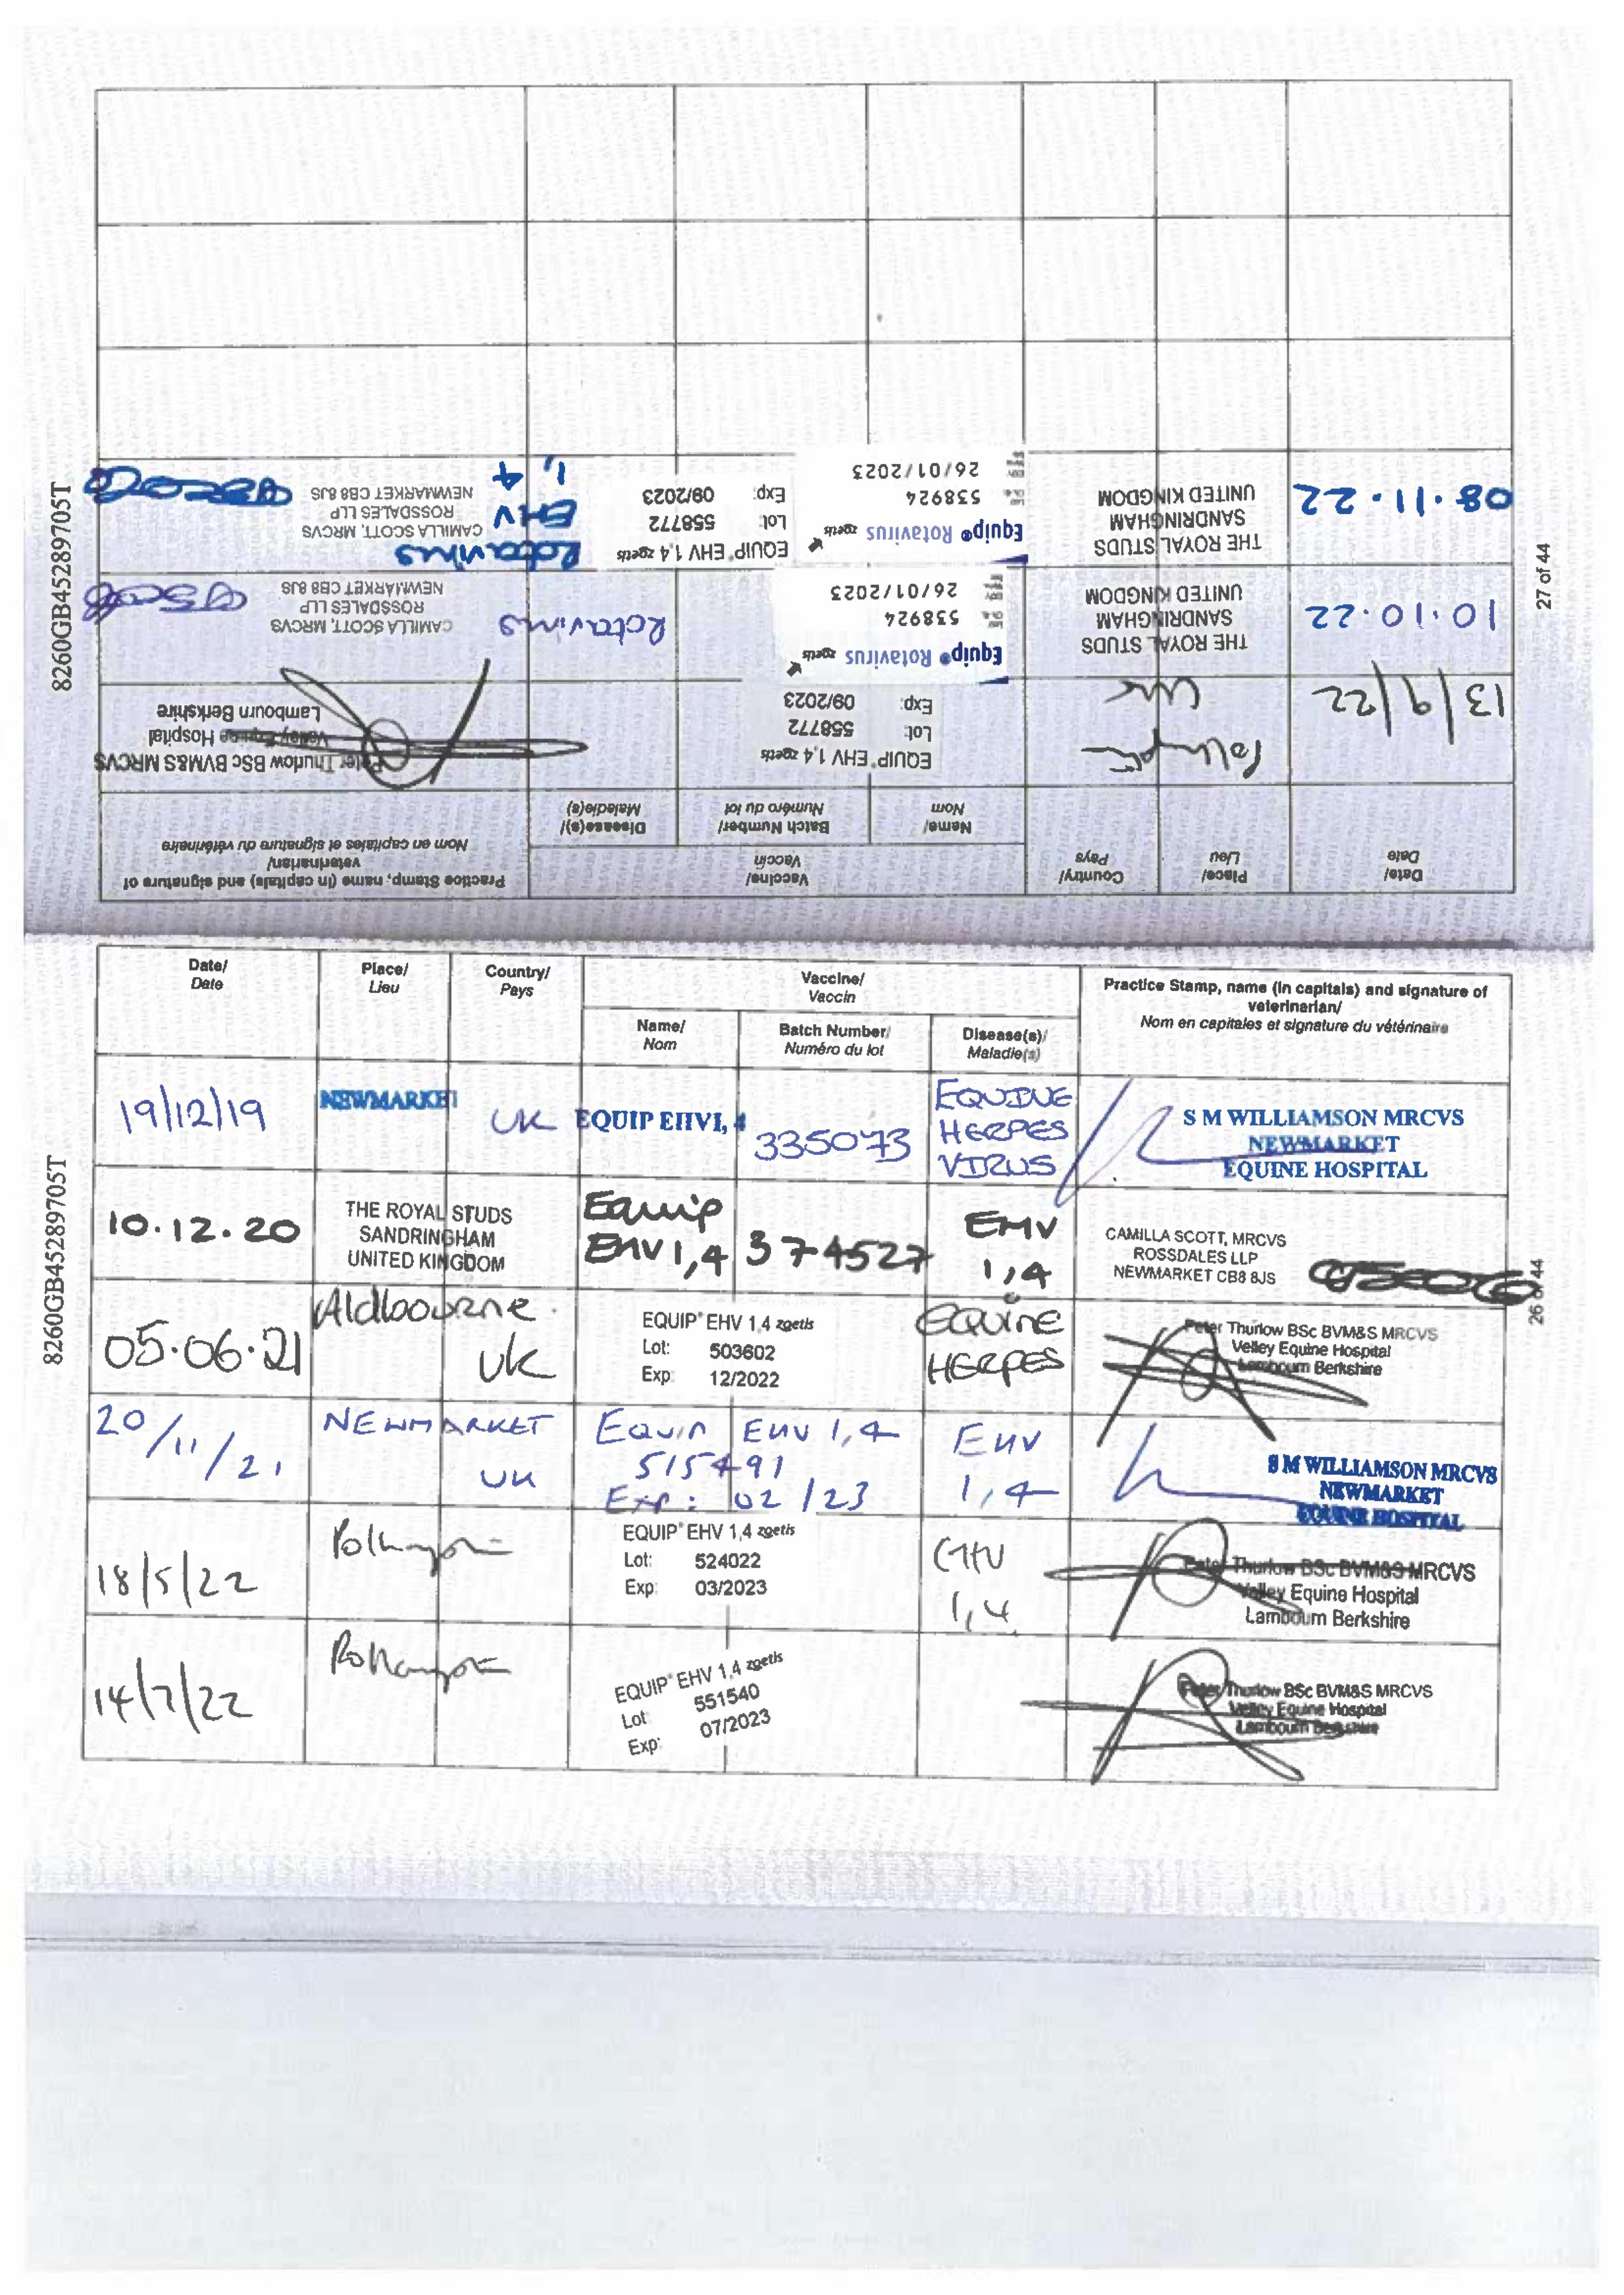 8260GB45289705T
27 of 44
Date/
Date
Place/
Lieu
Country/
Pays
Vaccine/
Vaccin
Name/
Nom
Batch Number/
Numéro du lot
Disease(s)/
Maladie(s)
Practice Stamp, name (in capitals) and signature of
veterinarian/
Nom en capitales et signature du vétérinaire
13/9/22
UK
EQUIP® EHV 1,4 zoetis
Lot: 558772
Exp: 09/2023
Peter Thurlow BSc BVM&S MRCVS
Valley Equine Hospital
Lambourn Berkshire
10.10.22
THE ROYAL STUDS
SANDRINGHAM
UNITED KINGDOM
Equip® Rotavirus zoetis
538924
26/01/2023
Rotavirus
CAMILLA SCOTT, MRCVS
ROSSDALES LLP
NEWMARKET CB8 8JS
08.11.22
THE ROYAL STUDS
SANDRINGHAM
UNITED KINGDOM
Equip® Rotavirus zoetis
538924
26/01/2023
EQUIP® EHV 1,4 zoetis
Lot: 558772
Exp: 09/2023
Rotavirus
EHV
1,4
CAMILLA SCOTT, MRCVS
ROSSDALES LLP
NEWMARKET CB8 8JS
8260GB45289705T
26 of 44
Date/
Date
Place/
Lieu
Country/
Pays
Vaccine/
Vaccin
Name/
Nom
Batch Number/
Numéro du lot
Disease(s)/
Maladie(s)
Practice Stamp, name (in capitals) and signature of
veterinarian/
Nom en capitales et signature du vétérinaire
19/12/19
NEWMARKET
UK
EQUIP EHV1, 4
335073
EQUINE
HERPES
VIRUS
S M WILLIAMSON MRCVS
NEWMARKET
EQUINE HOSPITAL
10.12.20
THE ROYAL STUDS
SANDRINGHAM
UNITED KINGDOM
Equip
EHV 1,4
374527
EHV
1,4
CAMILLA SCOTT, MRCVS
ROSSDALES LLP
NEWMARKET CB8 8JS
05.06.21
Aldbourne
UK
EQUIP® EHV 1,4 zoetis
Lot: 503602
Exp: 12/2022
EQUINE
HERPES
Peter Thurlow BSc BVM&S MRCVS
Valley Equine Hospital
Lambourn Berkshire
20/11/21
NEWMARKET
UK
EQUIP EHV 1,4
515491
Exp: 02/23
EHV
1,4
S M WILLIAMSON MRCVS
NEWMARKET
EQUINE HOSPITAL
18/5/22
EQUIP® EHV 1,4 zoetis
Lot: 524022
Exp: 03/2023
EHV
1,4
Peter Thurlow BSc BVM&S MRCVS
Valley Equine Hospital
Lambourn Berkshire
14/7/22
EQUIP® EHV 1,4 zoetis
Lot: 551540
Exp: 07/2023
Peter Thurlow BSc BVM&S MRCVS
Valley Equine Hospital
Lambourn Berkshire